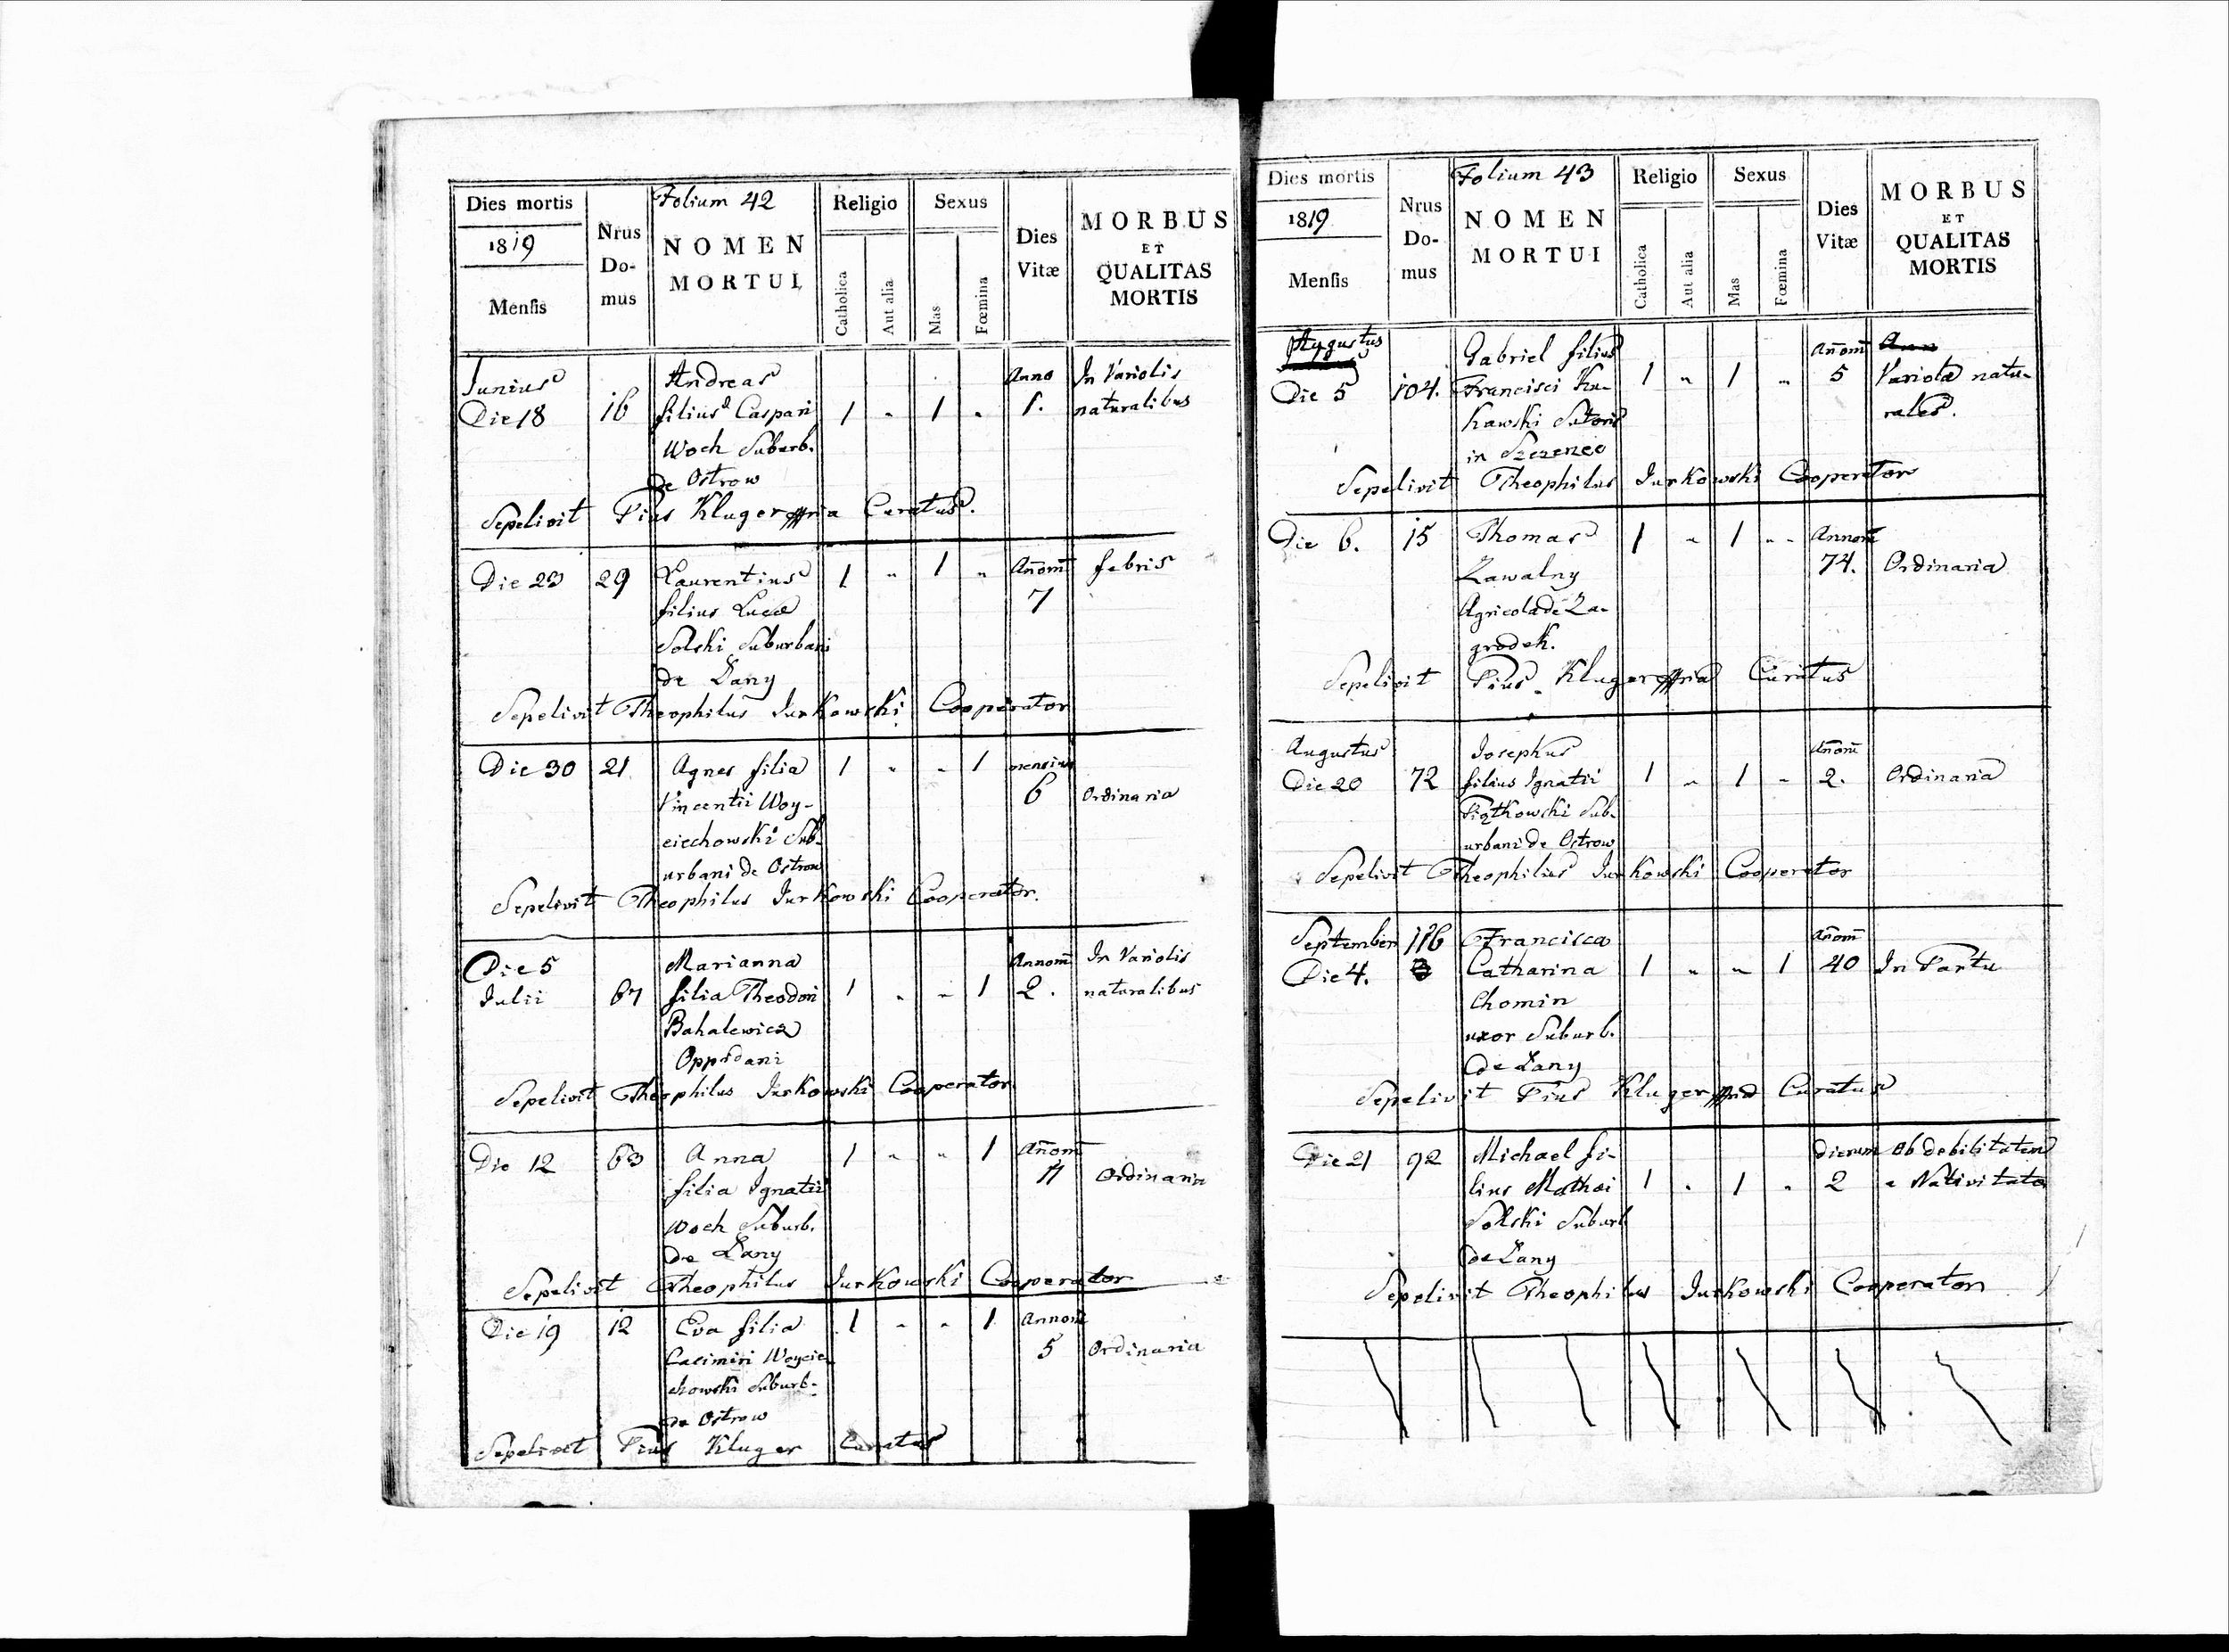 Dies mortis
1819
Menſis
Nrus
Do-
mus
Folium 42
NOMEN
MORTUI
Religio
Catholica
Aut alia
Sexus
Mas
Fœmina
Dies
Vitæ
MORBUS
ET
QUALITAS
MORTIS
Junius Andreas Anno In Variolis
Die 18 16 filius Caspari 1 " 1 " 1. naturalibus
Woch Suburb.
de Ostrow
Sepelivit Pius Kluger Curatus.
Die 23 29 Laurentius 1 " 1 " Añom febris
filius Lucæ 7
Solski Suburbani
de Łany
Sepelivit Theophilus Jurkowski Cooperator
Die 30 21 Agnes filia 1 " " 1 mensium
Vincentii Woy- 6 Ordinaria
ciechowski Sub-
urbani de Ostrow
Sepelivit Theophilus Jurkowski Cooperator.
Die 5 Marianna Annom In Variolis
Julii 67 filia Theodori 1 " " 1 2. naturalibus
Bahalewicz
Oppidani
Sepelivit Theophilus Jurkowski Cooperator
Die 12 63 Anna 1 " " 1 Añom
filia Ignatii Ordinaria
Woch Suburb.
de Łany
Sepelivit Theophilus Jurkowski Cooperator
Die 19 12 Eva filia 1 " " 1 Annom
Casimiri Woycie- 5 Ordinaria
chowski Suburb-
de Ostrow
Sepelivit Pius Kluger Curatus
Dies mortis
1819
Menſis
Nrus
Do-
mus
Folium 43
NOMEN
MORTUI
Religio
Catholica
Aut alia
Sexus
Mas
Fœmina
Dies
Vitæ
MORBUS
ET
QUALITAS
MORTIS
Augustus Gabriel filius Añom
Die 5 104. Francisci Ku- 1 " 1 " 5 Variola natu-
kawski Sutoris rales.
in Szczerzec
Sepelivit Theophilus Jurkowski Cooperator
Die 6. 15 Thomas 1 " 1 " " Annom
Zawalny 74. Ordinaria
Agricola de Za-
grodek.
Sepelivit Pius Kluger Curatus
Augustus Josephus Añom
Die 20 72 filius Ignatii 1 " 1 " 2. Ordinaria
Piątkowski Sub-
urbani de Ostrow
Sepelivit Theophilus Jurkowski Cooperator
September 116 Francisca Añom
Die 4. Catharina 1 " " 1 40 In Partu
Chomin
uxor Suburb.
de Łany
Sepelivit Pius Kluger Curatus
Die 21 92 Michael fi- Dierum Ob debilitatem
lius Mathæi 1 " 1 " 2 a Nativitate
Solski Suburb
de Łany
Sepelivit Theophilus Jurkowski Cooperator